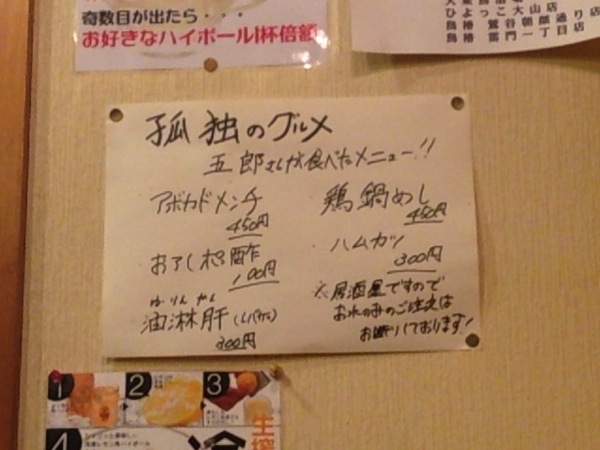 奇数目が出たら・・・
お好きなハイボール1杯倍額
ひよっこ大山店
鳥椿 鶯谷朝顔通り店
鳥椿 雷門一丁目店
孤独のグルメ
五郎さんが食べたメニュー!!
アボカドメンチ
450円
鶏鍋めし
450円
おろしポン酢
100円
ハムカツ
300円
ゆーりんかん
油淋肝(レバカラ)
300円
※居酒屋ですので
お水のみのご注文は
お断りしております!
1 2 3
4
生搾